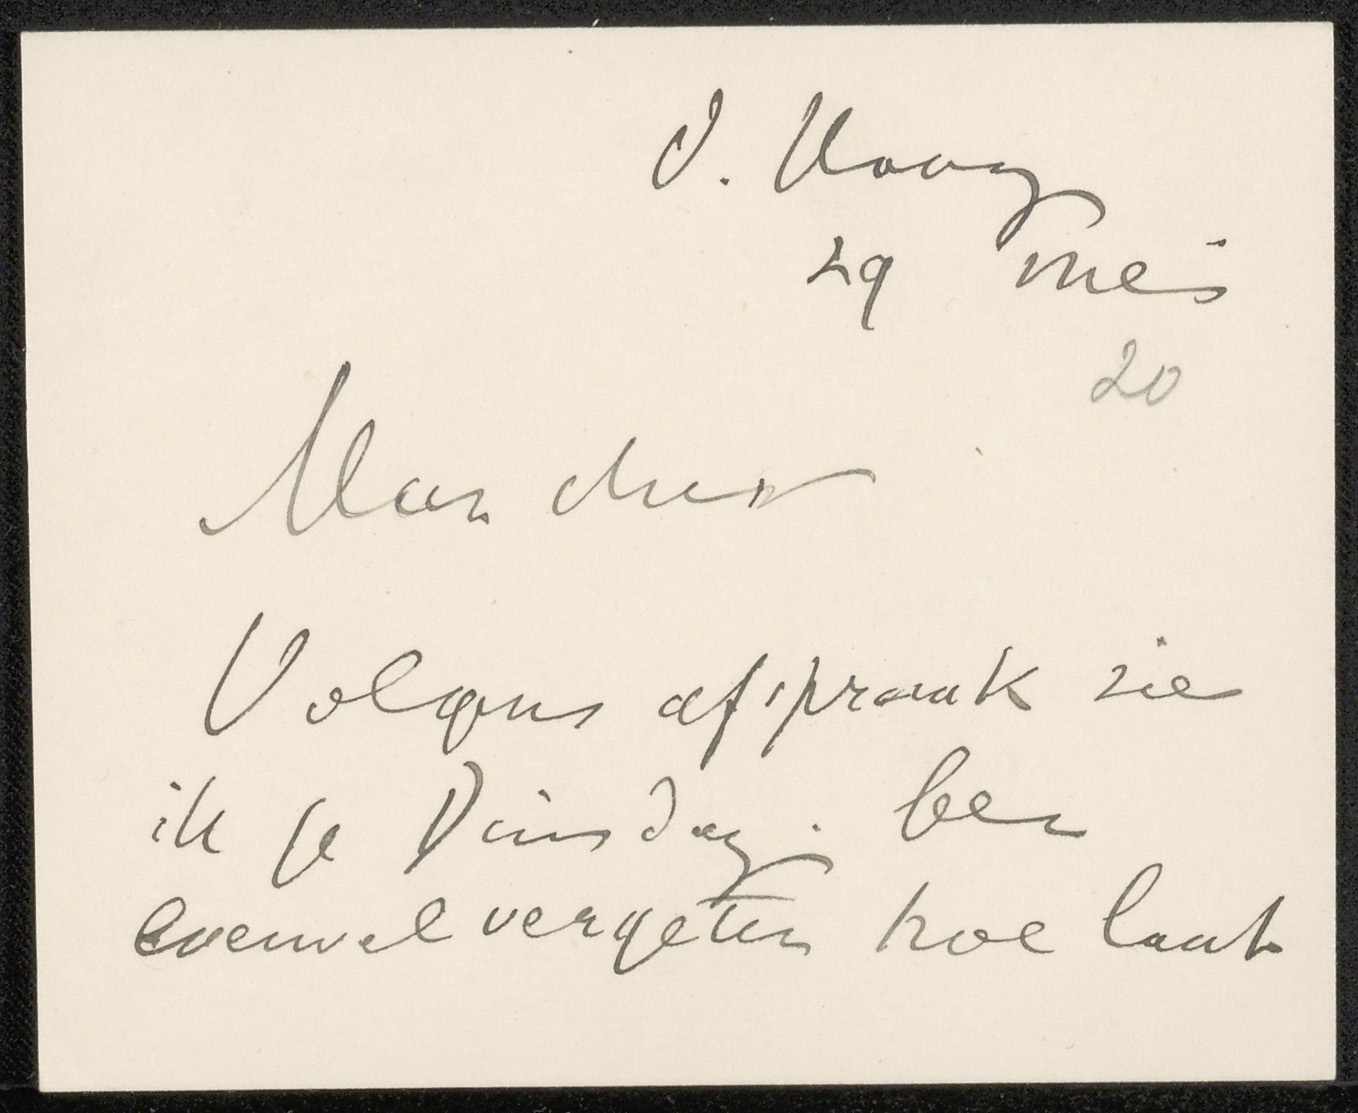 d. Haag
29 mei
20
Mon cher
Volgens afspraak zie
ik je Dinsdag. ben
evenwel vergeten hoe laat